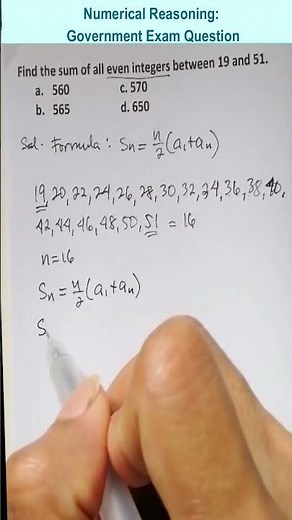 Numerical Reasoning:
Government Exam Question
Find the sum of all even integers between 19 and 51.
a. 560 c. 570
b. 565 d. 650
Sol. Formula: Sn = n/2 (a₁+an)
19, 20, 22, 24, 26, 28, 30, 32, 34, 36, 38, 40,
42, 44, 46, 48, 50, 51 = 16
n=16
Sn = n/2 (a₁+an)
S